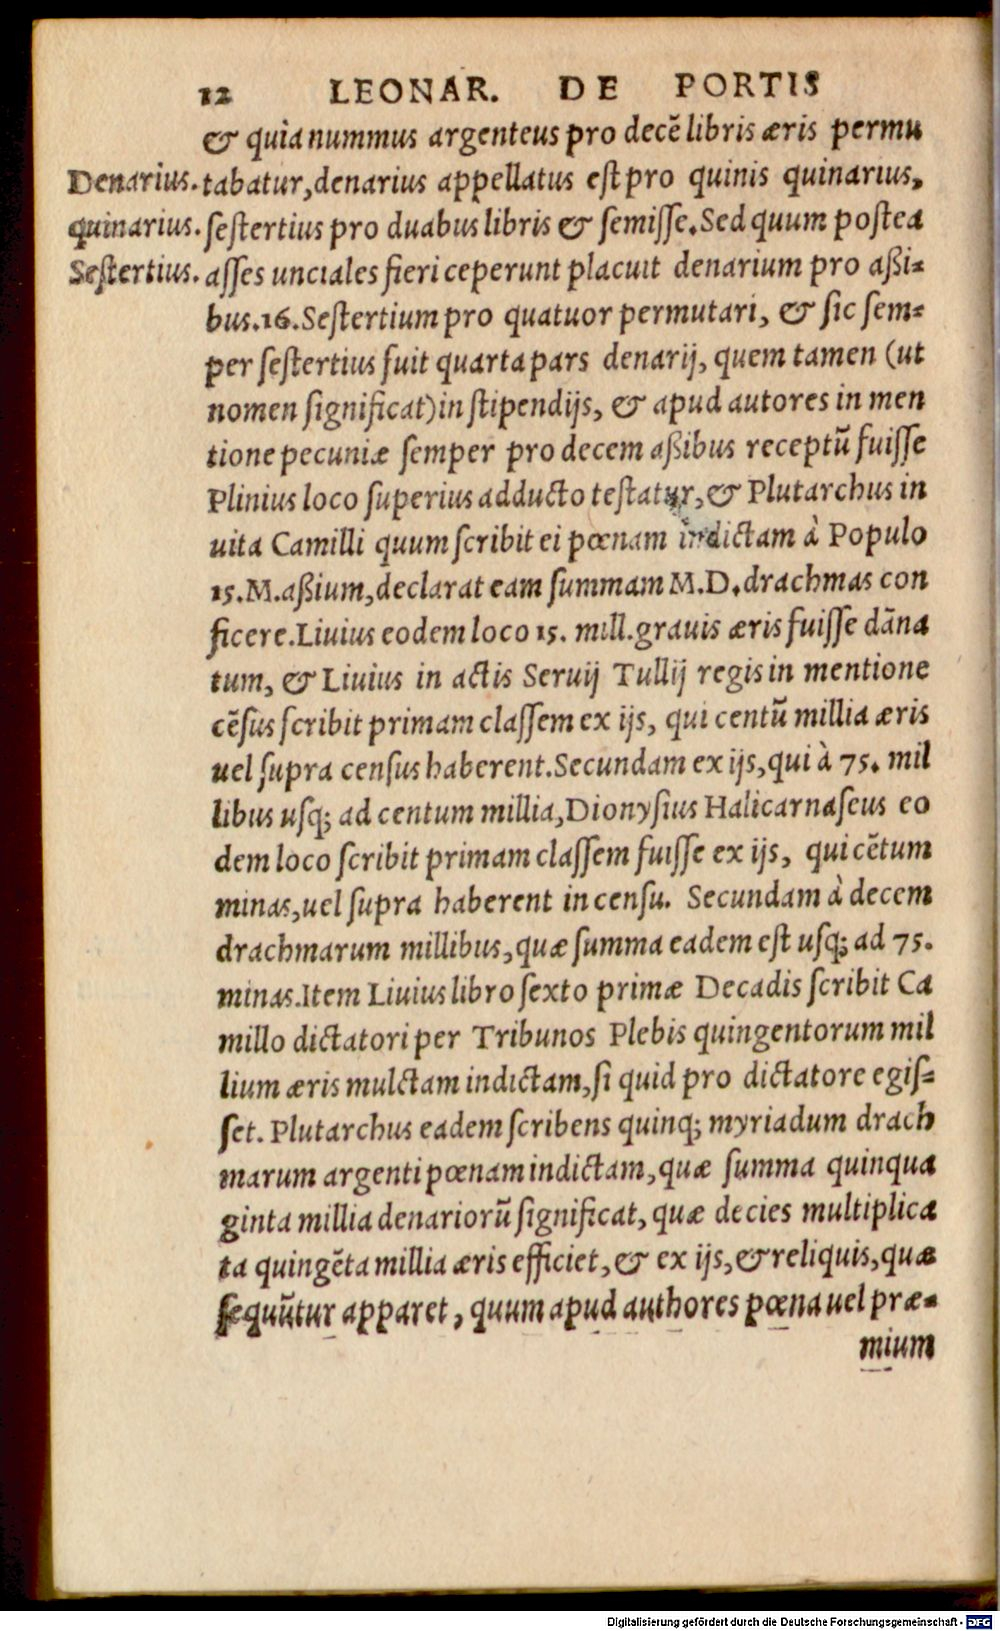 12 LEONAR. DE PORTIS
& quia nummus argenteus pro decē libris æris permu
Denarius. tabatur, denarius appellatus est pro quinis quinarius,
quinarius. sestertius pro duabus libris & semisse. Sed quum postea
Sestertius. asses unciales fieri ceperunt placuit denarium pro aßi-
bus. 16. Sestertium pro quatuor permutari, & sic sem-
per sestertius fuit quarta pars denarij, quem tamen (ut
nomen significat) in stipendijs, & apud autores in men
tione pecuniæ semper pro decem aßibus receptū fuisse
Plinius loco superius adducto testatur, & Plutarchus in
uita Camilli quum scribit ei pœnam indictam à Populo
15. M. aßium, declarat eam summam M.D. drachmas con
ficere. Liuius eodem loco 15. mill. grauis æris fuisse dāna
tum, & Liuius in actis Seruij Tullij regis in mentione
cēsus scribit primam classem ex ijs, qui centū millia æris
uel supra census haberent. Secundam ex ijs, qui à 75. mil
libus usq; ad centum millia, Dionysius Halicarnaseus eo
dem loco scribit primam classem fuisse ex ijs, qui cētum
minas, uel supra haberent in censu. Secundam à decem
drachmarum millibus, quæ summa eadem est usq; ad 75.
minas. Item Liuius libro sexto primæ Decadis scribit Ca
millo dictatori per Tribunos Plebis quingentorum mil
lium æris mulctam indictam, si quid pro dictatore egis-
set. Plutarchus eadem scribens quinq; myriadum drach
marum argenti pœnam indictam, quæ summa quinqua
ginta millia denariorū significat, quæ decies multiplica
ta quingēta millia æris efficiet, & ex ijs, & reliquis, quæ
sequūtur apparet, quum apud authores pœna uel præ-
mium
Digitalisierung gefördert durch die Deutsche Forschungsgemeinschaft - DFG